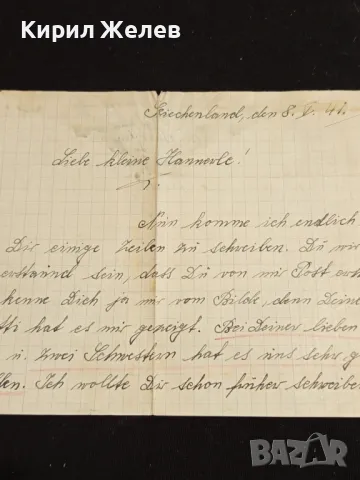 Кирил Желев
Griechenland, den 8. V. 41.
Liebe kleine Hannerle!
Nun komme ich endlich
Dir einige Zeilen zu schreiben. Du wir
erstaund sein, dass Du von mir Post er
kenne Dich ja nur vom Bilde, denn Deine
tti hat es mir gezeigt. Bei Deiner lieben
u. zwei Schwestern hat es uns sehr g
llen. Ich wollte Dir schon früher schreibe
BAZAR